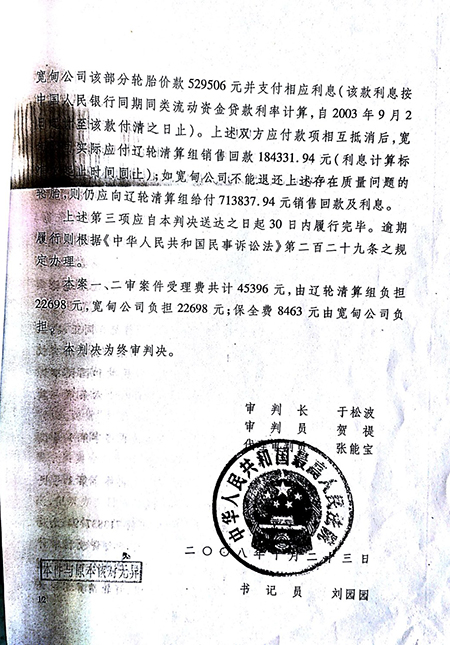 宽甸公司该部分轮胎价款529506元并支付相应利息(该款利息按
中国人民银行同期同类流动资金贷款利率计算,自2003年9月2
至该款付清之日止)。上述双方应付款项相互抵消后,宽
实际应付辽轮清算组销售回款184331.94元(利息计算标
时间同上);如宽甸公司不能退还上述存在质量问题的
轮胎,则仍应向辽轮清算组给付713837.94元销售回款及利息。
上述第三项应自本判决送达之日起30日内履行完毕。逾期
履行则根据《中华人民共和国民事诉讼法》第二百二十九条之规
定办理。
本案一、二审案件受理费共计45396元,由辽轮清算组负担
22698元,宽甸公司负担22698元;保全费8463元由宽甸公司负
担。
本判决为终审判决。
审判长 于松波
审判员 贺禔
审判员 张能宝
中华人民共和国最高人民法院
二〇〇八年十月二十三日
本件与原本核对无异
书记员 刘园园
12